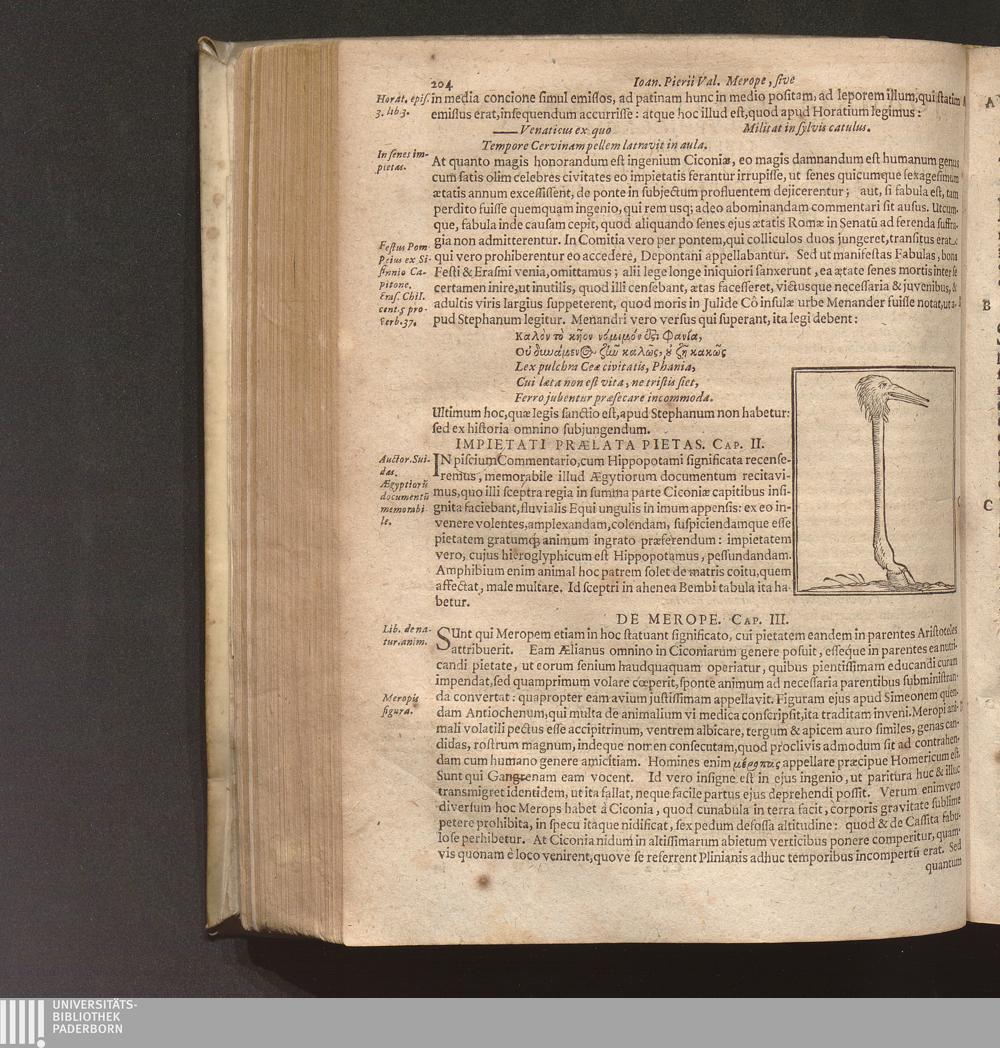 204 Ioan. Pierii Val. Merope, ſive
Horat. epiſ.
3. lib 3.
in media concione ſimul emiſſos, ad patinam hunc in medio poſitam, ad leporem illum, qui ſtatim
emiſſus erat, inſequendum accurriſſe: atque hoc illud eſt, quod apud Horatium legimus:
—— Venaticus ex quo Militat in ſylvis catulus.
Tempore Cervinam pellem latravit in aula.
In ſenes im-
pietas.
At quanto magis honorandum eſt ingenium Ciconiæ, eo magis damnandum eſt humanum genus
cum ſatis olim celebres civitates eo impietatis ferantur irrupiſſe, ut ſenes quicumque ſexageſimum
ætatis annum exceſſiſſent, de ponte in ſubjectum profluentem dejicerentur; aut, ſi fabula eſt, tam
perdito fuiſſe quemquam ingenio, qui rem usq; adeo abominandam commentari ſit auſus. Utcum-
que, fabula inde cauſam cepit, quod aliquando ſenes ejus ætatis Romæ in Senatū ad ferenda ſuffra-
gia non admitterentur. In Comitia vero per pontem, qui colliculos duos jungeret, tranſitus erat,
Feſtus Pom-
peius ex Si-
ſinnio Ca-
pitone.
Eraſ. Chil.
cent. 5 pro-
verb. 37.
qui vero prohiberentur eo accedere, Depontani appellabantur. Sed ut manifeſtas Fabulas, bona
Feſti & Eraſmi venia, omittamus; alii lege longe iniquiori ſanxerunt, ea ætate ſenes mortis inter ſe
certamen inire, ut inutilis, quod illi cenſebant, ætas faceſſeret, victusque neceſſaria & juvenibus, &
adultis viris largius ſuppeterent, quod moris in Julide Cô inſulæ urbe Menander fuiſſe notat, ut a-
pud Stephanum legitur. Menandri vero verſus qui ſuperant, ita legi debent:
Καλὸν τὸ κῆον νόμιμόν ἐστι Φανία,
Οὐ δυνάμενος ζῆν καλῶς, ὀ ζῆ κακῶς
Lex pulchra Ceæ civitatis, Phania,
Cui læta non eſt vita, ne triſtis ſiet,
Ferro jubentur præſecare incommoda.
Ultimum hoc, quæ legis ſanctio eſt, apud Stephanum non habetur:
ſed ex hiſtoria omnino ſubjungendum.
IMPIETATI PRÆLATA PIETAS. CAP. II.
Auctor. Sui-
das.
Ægyptiorū
documentū
memorabi
le.
IN piſcium Commentario, cum Hippopotami ſignificata recenſe-
remus, memorabile illud Ægytiorum documentum recitavi-
mus, quo illi ſceptra regia in ſumma parte Ciconiæ capitibus inſi-
gnita faciebant, fluvialis Equi ungulis in imum appenſis: ex eo in-
venere volentes, amplexandam, colendam, ſuſpiciendamque eſſe
pietatem gratumq; animum ingrato præferendum: impietatem
vero, cujus hieroglyphicum eſt Hippopotamus, peſſundandam.
Amphibium enim animal hoc patrem ſolet de matris coitu, quem
affectat, male multare. Id ſceptri in ahenea Bembi tabula ita ha-
betur.
DE MEROPE. CAP. III.
Lib. de na-
tur. anim.
SUnt qui Meropem etiam in hoc ſtatuant ſignificato, cui pietatem eandem in parentes Ariſtoteles
attribuerit. Eam Ælianus omnino in Ciconiarum genere poſuit, eſſeque in parentes ea nutri-
candi pietate, ut eorum ſenium haudquaquam operiatur, quibus pientiſſimam educandi curam
impendat, ſed quamprimum volare cœperit, ſponte animum ad neceſſaria parentibus ſubminiſtran-
Meropis
figura.
da convertat: quapropter eam avium juſtiſſimam appellavit. Figuram ejus apud Simeonem quen-
dam Antiochenum, qui multa de animalium vi medica conſcripſit, ita traditam inveni. Meropi ani-
mali volatili pectus eſſe accipitrinum, ventrem albicare, tergum & apicem auro ſimiles, genas can-
didas, roſtrum magnum, indeque nomen conſecutam, quod proclivis admodum ſit ad contrahen-
dam cum humano genere amicitiam. Homines enim μέροπας appellare præcipue Homericum eſt.
Sunt qui Gangrenam eam vocent. Id vero inſigne eſt in ejus ingenio, ut paritura huc & illuc
transmigret identidem, ut ita fallat, neque facile partus ejus deprehendi poſſit. Verum enimvero
diverſum hoc Merops habet à Ciconia, quod cunabula in terra facit, corporis gravitate ſublime
petere prohibita, in ſpecu itaque nidificat, ſex pedum defoſſa altitudine: quod & de Caſſita fabu-
loſe perhibetur. At Ciconia nidum in altiſſimarum abietum verticibus ponere comperitur, quam-
vis quonam è loco venirent, quove ſe referrent Plinianis adhuc temporibus incompertū erat. Sed
quantum
A
B
C
UNIVERSITÄTS-
BIBLIOTHEK
PADERBORN